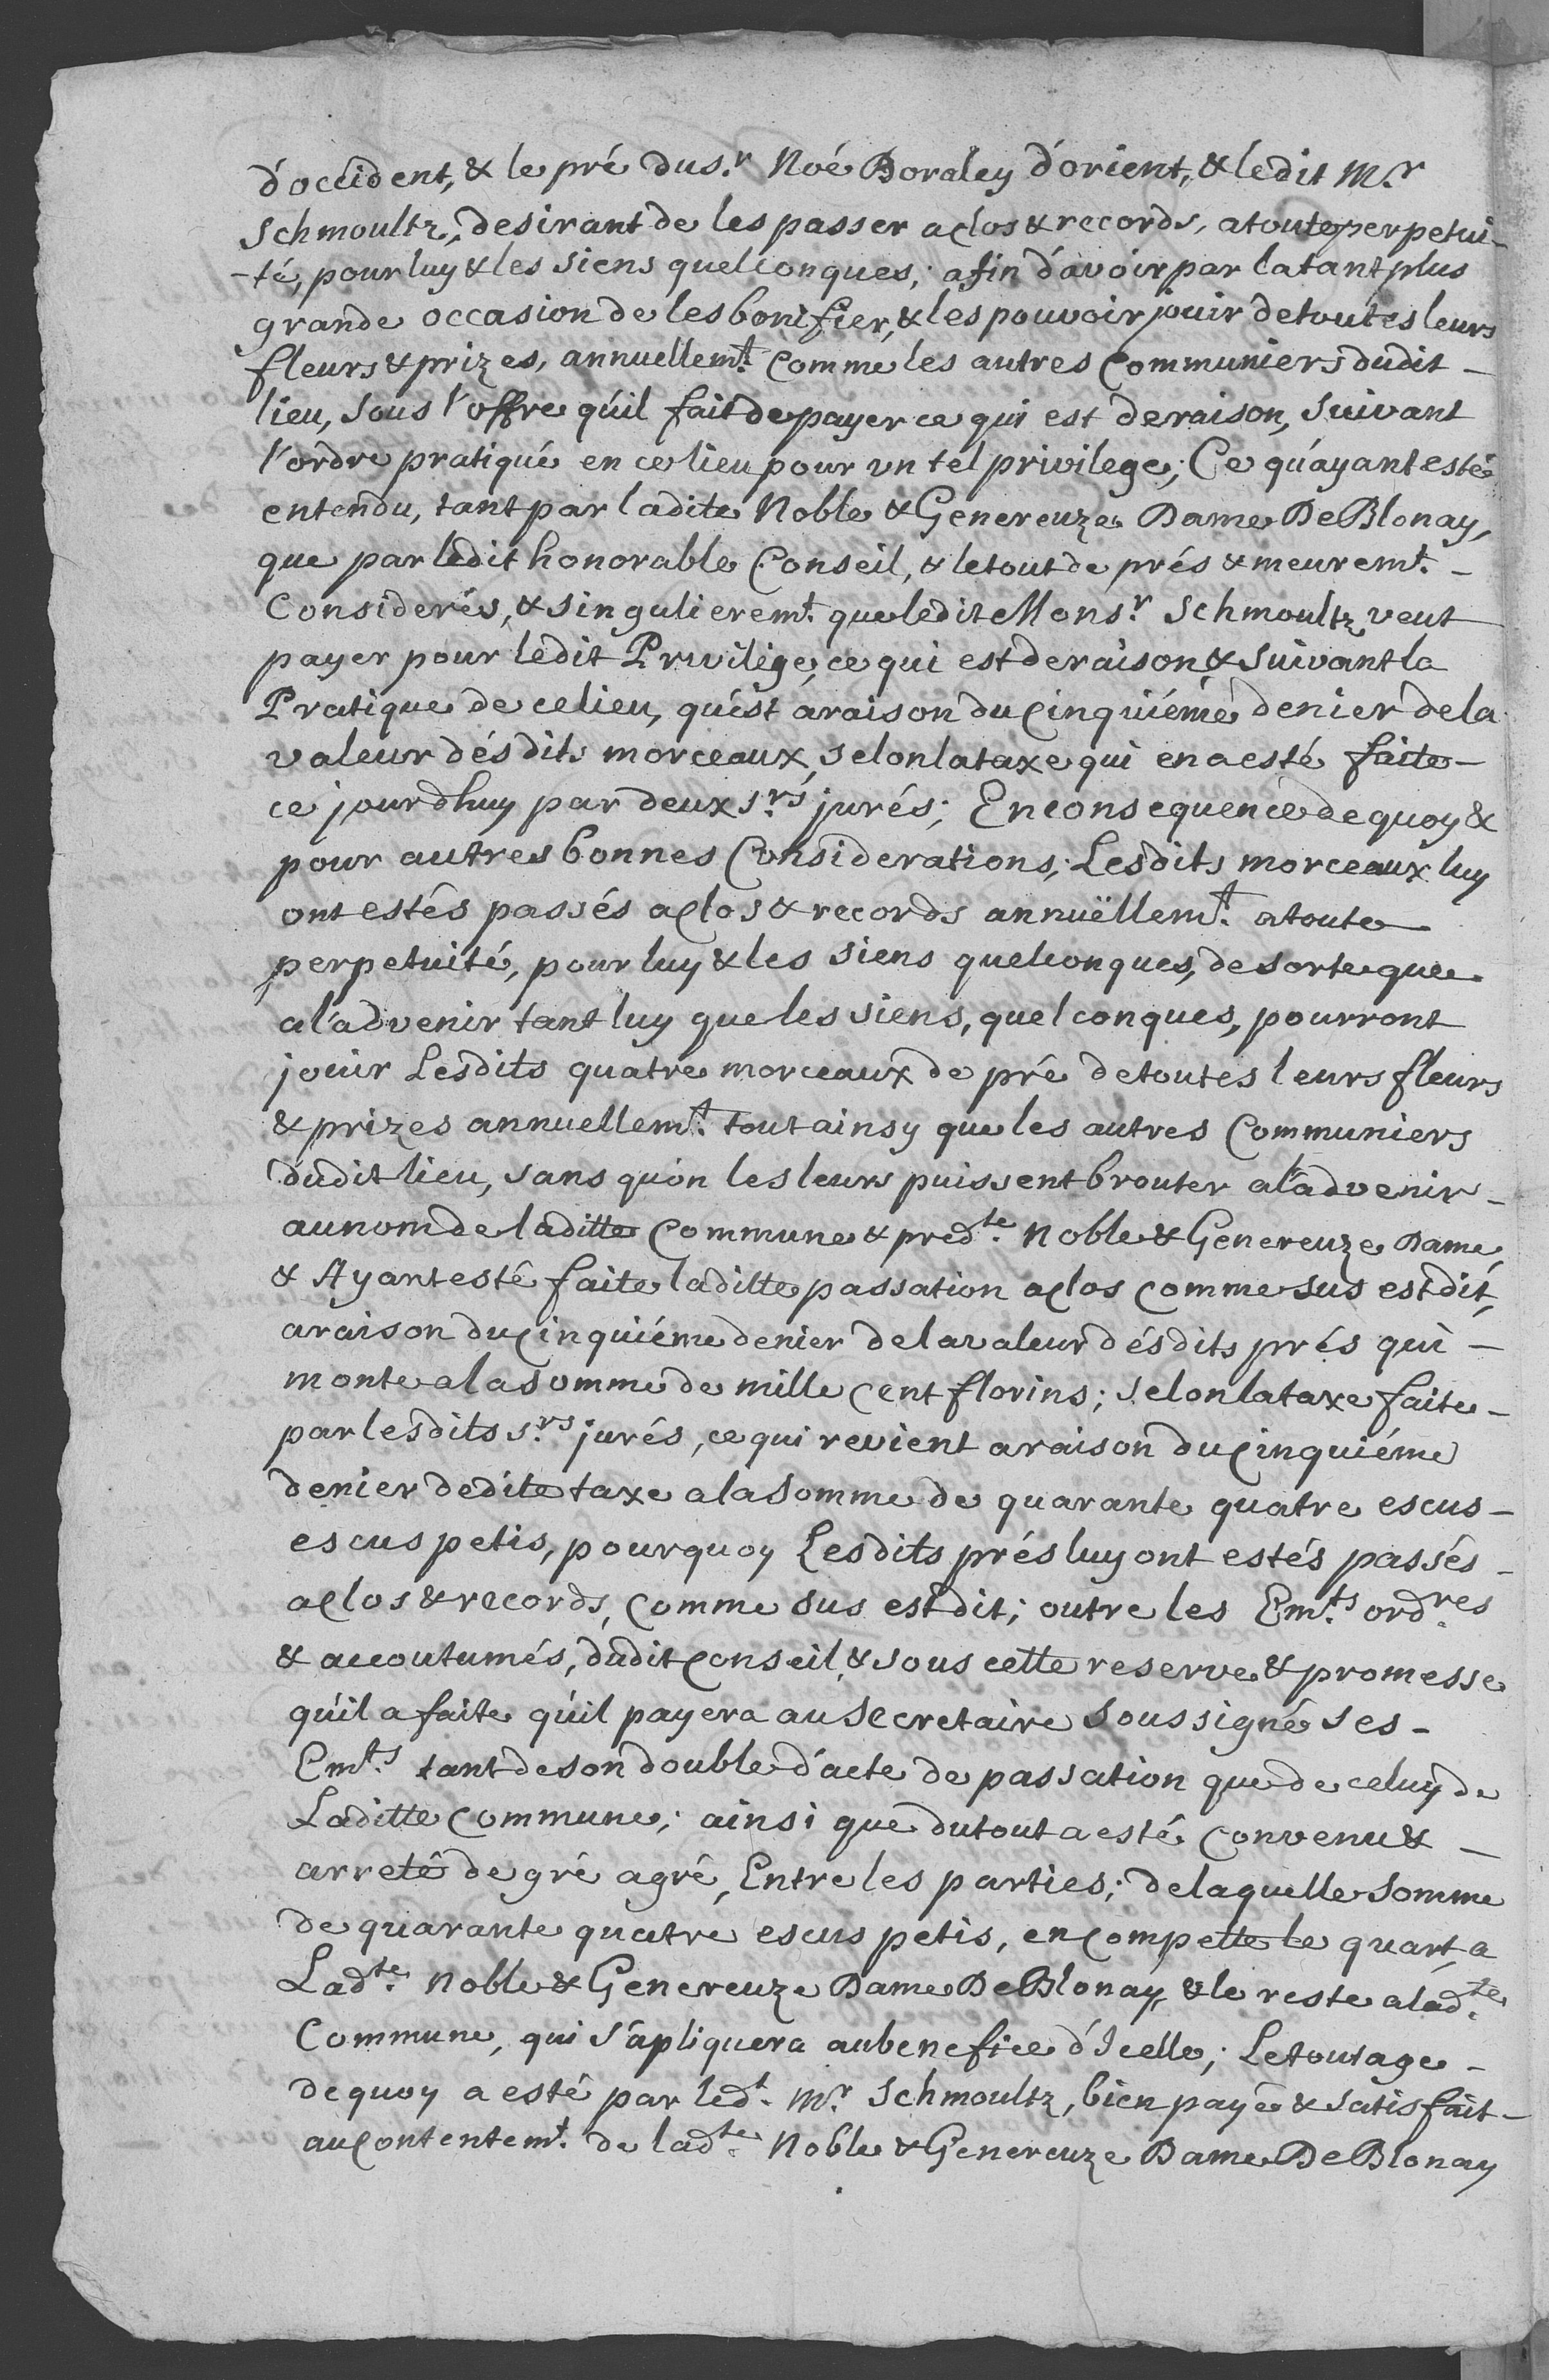 d'occident, & le pré du s.r Noé Doraley d'orient, & ledit M.r
Schmoultz, desirant de les passer a clos & records, a toute perpetui-
-té, pour luy & les siens quelconques; afin d'avoir par la tant plus
grande occasion de les bonifier, & les pouvoir jouir de toutes leurs
fleurs & prizes, annuellem.t comme les autres Communiers dudit -
lieu, sous l'offre qu'il fait de payer ce qui est de raison, suivant
l'ordre pratiqué en ce lieu pour un tel privilege; Ce qu'ayant esté
entendu, tant par ladite Noble & Genereuze Dame De Blonay,
que par ledit honorable Conseil, & le tout de prés & meurem.t -
Considerés, & singulierem.t que ledit Mons.r Schmoultz veut
payer pour ledit Privilége, ce qui est de raison, & suivant la
Pratique de ce lieu, qu'est a raison du Cinquiéme denier de la
valeur désdits morceaux, selon la taxe qui en a esté faite -
ce jourdhuy par deux s.rs jurés; En consequence de quoy &
pour autres bonnes Considerations, Lesdits morceaux luy
ont estés passés a clos & records annuëllem.t a toute
perpetuité, pour luy & les siens quelconques, de sorte que
a l'advenir tant luy que les siens, quelconques, pourront
jouir Lesdits quatre morceaux de pré de toutes leurs fleurs
& prizes annuellem.t tout ainsy que les autres Communiers
dudit lieu, sans qu'on les leurs puissent brouter a l'advenir -
au nom de laditte Commune & pred.te Noble & Genereuze Dame,
& Ayant esté faite laditte passation a clos comme sus est dit,
a raison du Cinquiéme denier de la valeur désdits prés qui -
monte a la somme de mille Cent florins; selon la taxe faite -
par lesdits s.rs jurés, ce qui revient a raison du Cinquiéme
denier dedite taxe a la somme de quarante quatre escus -
escus petis, pourquoy Lesdits prés luy ont estés passés -
a clos & records, Comme sus est dit; outre les Em.ts ord.res
& accoutumés, dudit Conseil, & sous cette reserve & promesse
qu'il a faite qu'il payera au Secretaire soussigné ses -
Em.ts tant de son double d'acte de passation que de celuy de
Laditte Commune; ainsi que du tout a esté Convenu & -
arreté de gré a gré, Entre les parties; de laquelle somme
de quarante quatre escus petis, en Compette le quart, a
Lad.te Noble & Genereuze Dame De Blonay, & le reste a lad.te
Commune, qui s'apliquera au benefice d'Icelle; Le tousage -
de quoy a esté par led.t M.r Schmoultz, bien payé & satisfait -
au Contentem.t de lad.te Noble & Genereuze Dame De Blonay